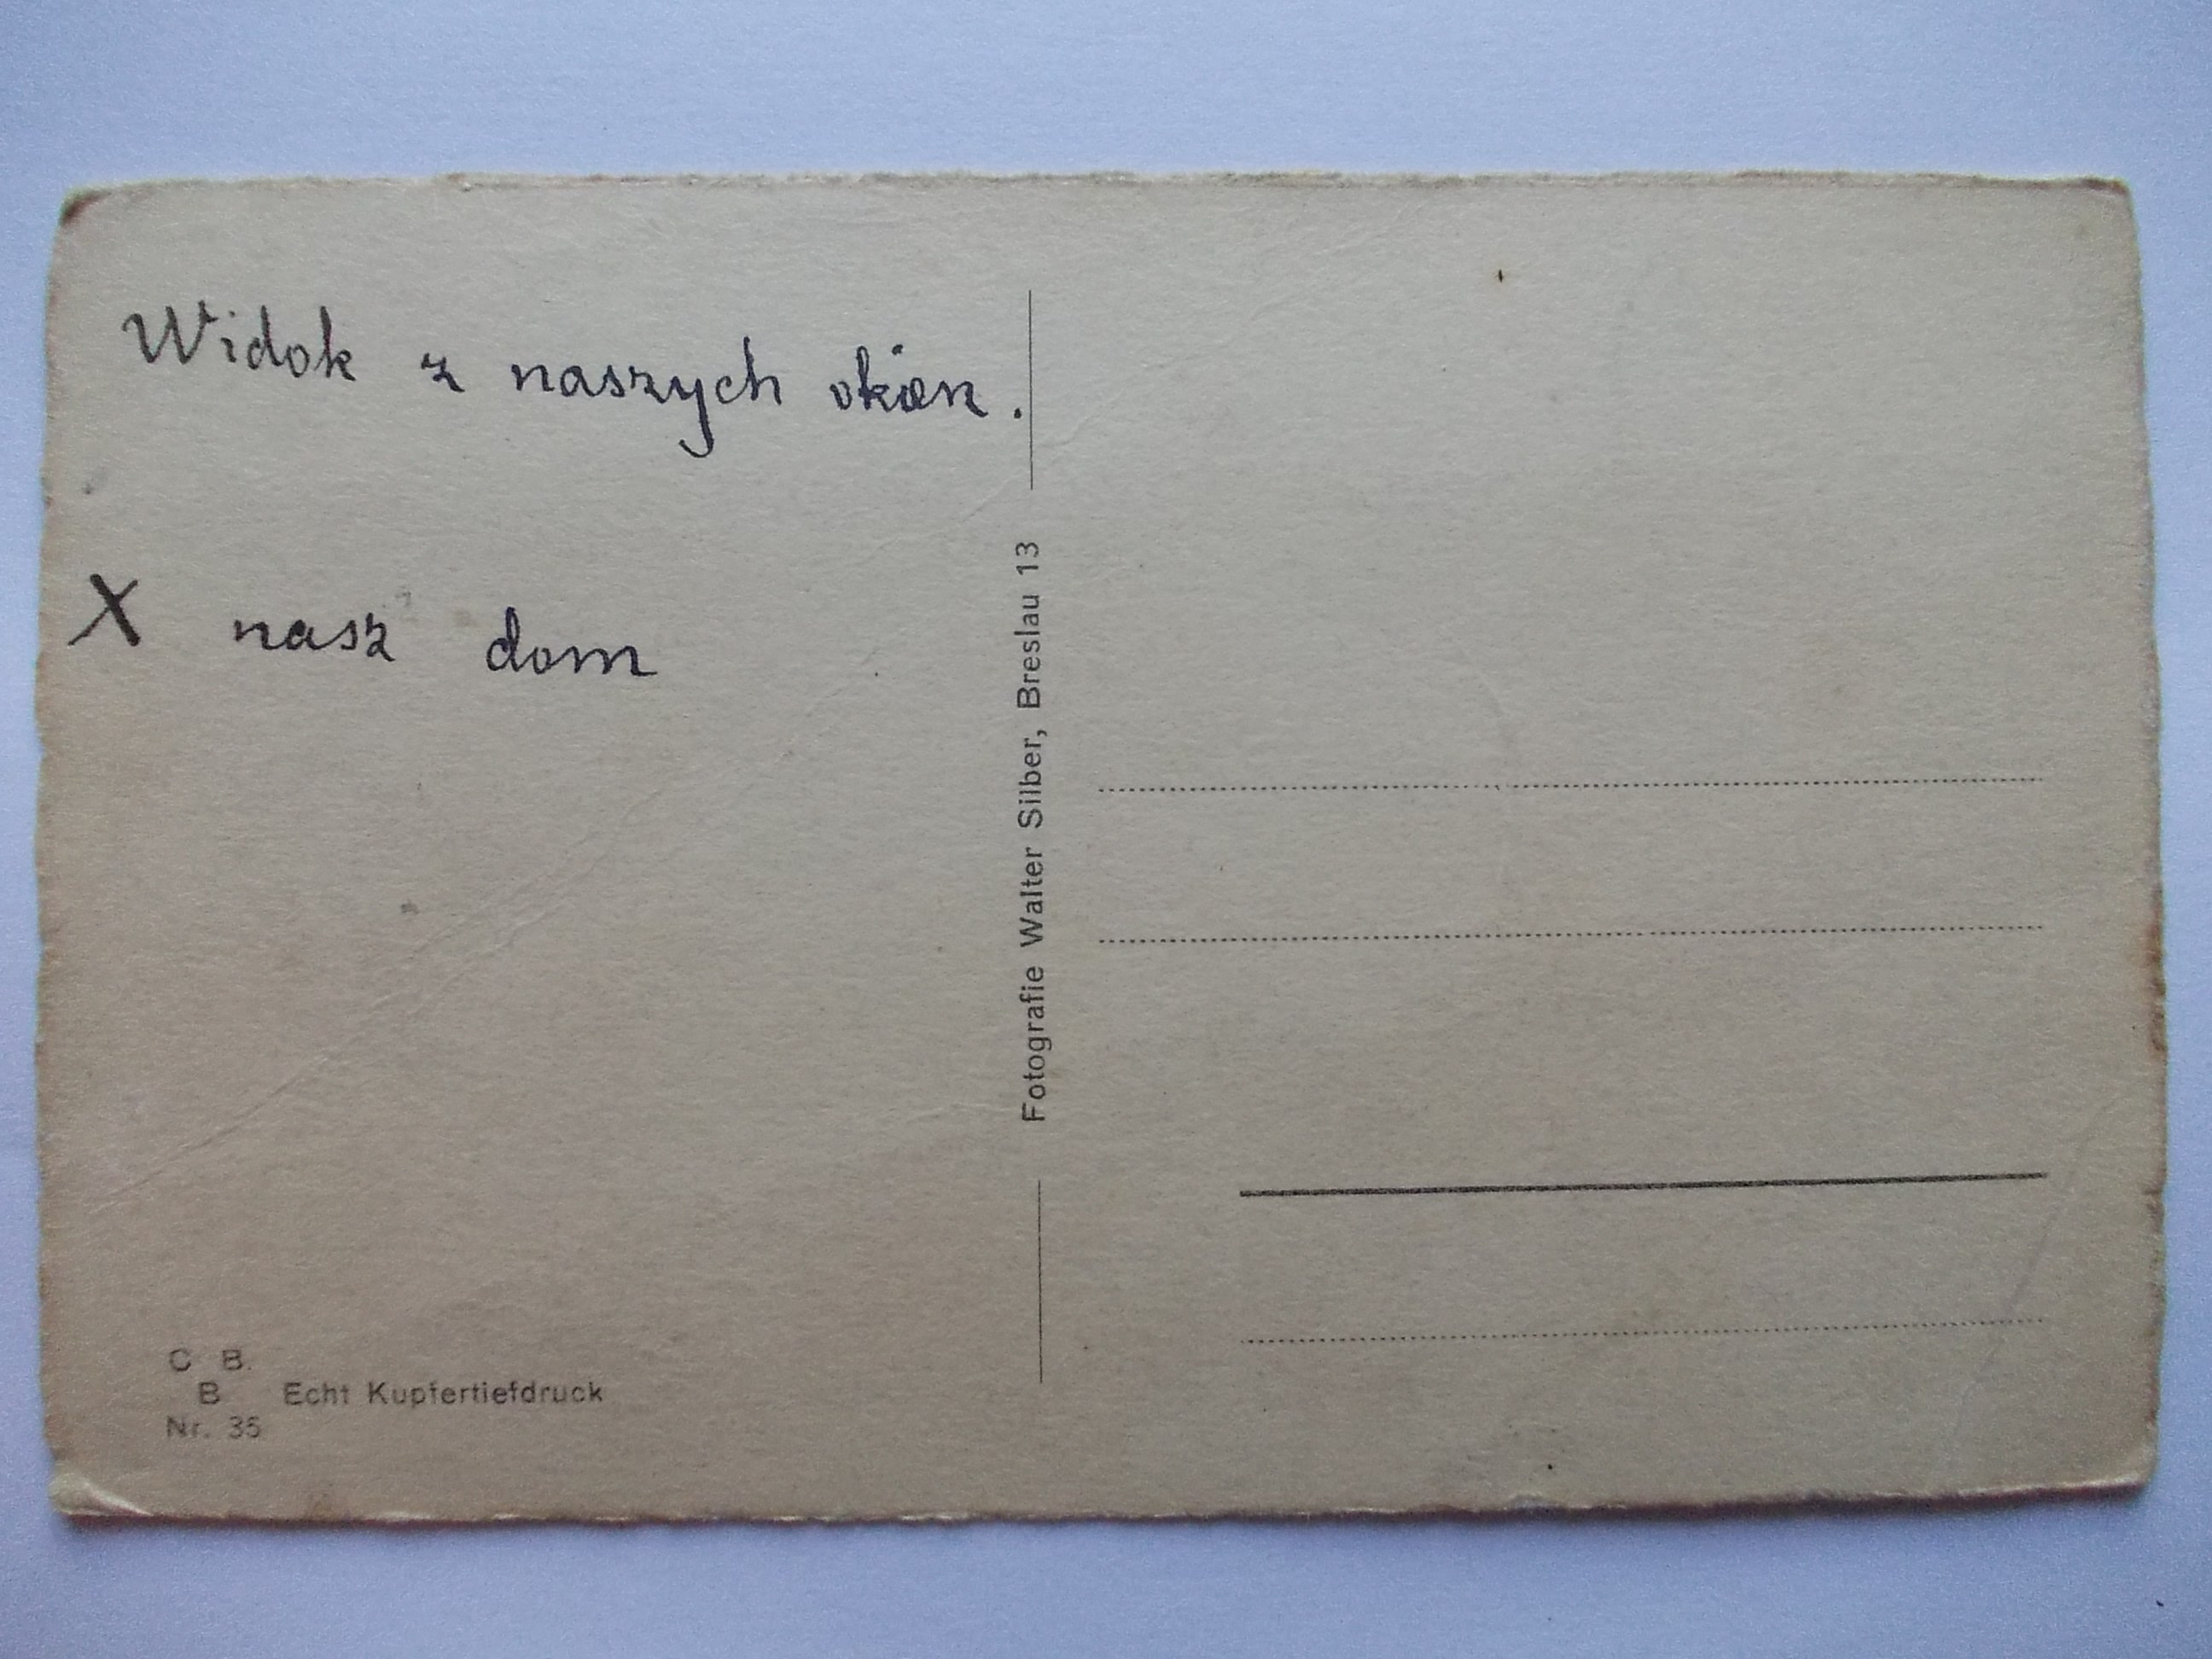 Widok z naszych okien.
X nasz dom
Fotografie Walter Silber, Breslau 13
C B.
B Echt Kupfertiefdruck
Nr. 35